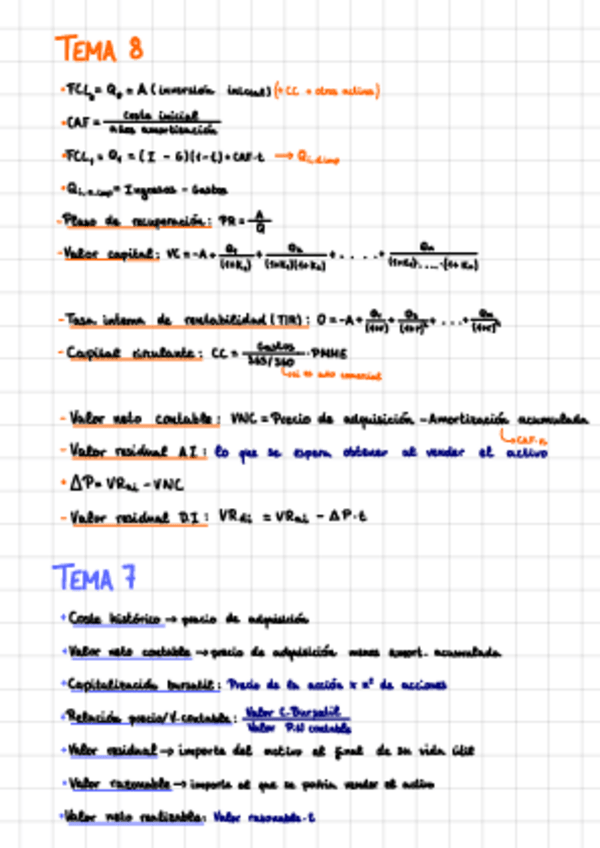 TEMA 8
- FCL₀ = Q₀ = A (inversión inicial) (+ CC + otros activos)
- CAF = Coste inicial / años amortización
- FCL₁ = Q₁ = (I - G)(1-t) + CAF·t →
= Ingresos - Gastos
- Plazo de recuperación: PR = A / Q
- Valor capital: VC = -A + Q₁/(1+k₁) + Q₂/(1+k₁)(1+k₂) + . . . . + Qₙ/(1+k₁)·....·(1+kₙ)
- Tasa interna de rentabilidad (TIR): 0 = -A + Q₁/(1+r) + Q₂/(1+r)² + ... + Qₙ/(1+r)ⁿ
- Capital circulante: CC = Gastos / 365/360 · PMME
si es año comercial
- Valor neto contable: VNC = Precio de adquisición - Amortización acumulada
CAF·n
- Valor residual A.I: lo que se espera obtener al vender el activo
• ΔP = VRai - VNC
- Valor residual D.I: VRdi = VRai - ΔP·t
TEMA 7
• Coste histórico → precio de adquisición
• Valor neto contable → precio de adquisición menos amort. acumulada
• Capitalización bursatil: Precio de la acción x nº de acciones
• Relación precio/V.contable: Valor C.Bursatil / Valor P.N contable
• Valor residual → importe del activo al final de su vida útil
• Valor razonable → importe al que se podría vender el activo
• Valor neto realizable: Valor razonable - t